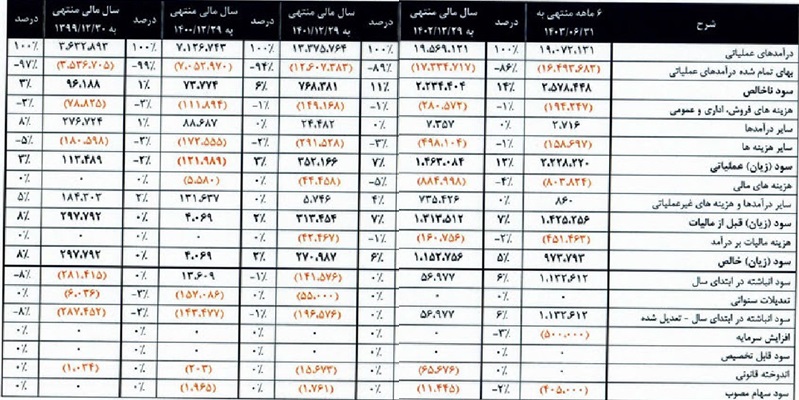 شرح ۶ ماهه منتهی به ۱۴۰۳/۰۶/۳۱ درصد سال مالی منتهی به ۱۴۰۲/۱۲/۲۹ درصد سال مالی منتهی به ۱۴۰۱/۱۲/۲۹ درصد سال مالی منتهی به ۱۴۰۰/۱۲/۲۹ درصد سال مالی منتهی به ۱۳۹۹/۱۲/۳۰ درصد
درآمدهای عملیاتی ۱۹,۰۷۲,۱۳۱ ۱۰۰٪ ۱۹,۵۶۹,۱۲۱ ۱۰۰٪ ۱۳,۳۷۵,۷۶۴ ۱۰۰٪ ۷,۱۲۶,۷۴۳ ۱۰۰٪ ۳,۶۳۲,۸۹۳ ۱۰۰٪
بهای تمام شده درآمدهای عملیاتی (۱۶,۴۹۳,۶۸۳) -۸۶٪ (۱۷,۳۳۴,۷۱۷) -۸۹٪ (۱۲,۶۰۷,۳۸۳) -۹۴٪ (۷,۰۵۲,۹۷۰) -۹۹٪ (۳,۵۳۶,۷۰۵) -۹۷٪
سود ناخالص ۲,۵۷۸,۴۴۸ ۱۴٪ ۲,۲۳۴,۴۰۴ ۱۱٪ ۷۶۸,۳۸۱ ۶٪ ۷۳,۷۷۴ ۱٪ ۹۶,۱۸۸ ۳٪
هزینه های فروش، اداری و عمومی (۱۹۴,۲۴۷) -۱٪ (۲۸۰,۵۷۲) -۱٪ (۱۴۹,۱۶۸) -۱٪ (۱۱۱,۸۹۴) -۲٪ (۷۸,۸۲۵) -۲٪
سایر درآمدها ۲,۷۱۶ ۰٪ ۷,۳۵۷ ۰٪ ۲۴,۴۸۲ ۰٪ ۸۸,۶۸۷ ۱٪ ۲۷۶,۷۲۴ ۸٪
سایر هزینه ها (۱۵۸,۶۹۷) -۱٪ (۴۹۸,۱۰۴) -۳٪ (۲۹۱,۵۲۸) -۲٪ (۱۷۲,۵۵۵) -۲٪ (۱۸۰,۵۹۸) -۵٪
سود (زیان) عملیاتی ۲,۲۲۸,۲۲۰ ۱۲٪ ۱,۴۶۳,۰۸۴ ۷٪ ۳۵۲,۱۶۶ ۳٪ (۱۲۱,۹۸۹) -۲٪ ۱۱۳,۴۸۹ ۳٪
هزینه های مالی (۸۰۳,۸۲۴) -۴٪ (۸۸۴,۹۹۸) -۵٪ (۴۴,۴۵۸) ۰٪ (۵,۵۸۰) ۰٪ ۰ ۰٪
سایر درآمدها و هزینه های غیرعملیاتی ۸۶۰ ۰٪ ۷۳۵,۴۲۶ ۴٪ ۵,۷۴۶ ۰٪ ۱۳۱,۶۳۷ ۲٪ ۱۸۴,۳۰۳ ۵٪
سود (زیان) قبل از مالیات ۱,۴۲۵,۲۵۶ ۷٪ ۱,۳۱۳,۵۱۲ ۷٪ ۳۱۳,۴۵۴ ۲٪ ۴,۰۶۹ ۰٪ ۲۹۷,۷۹۲ ۸٪
هزینه مالیات بر درآمد (۴۵۱,۴۶۳) -۲٪ (۱۶۰,۷۵۶) -۱٪ (۴۲,۴۶۷) ۰٪ ۰ ۰٪ ۰ ۰٪
سود (زیان) خالص ۹۷۳,۷۹۳ ۵٪ ۱,۱۵۲,۷۵۶ ۶٪ ۲۷۰,۹۸۷ ۲٪ ۴,۰۶۹ ۰٪ ۲۹۷,۷۹۲ ۸٪
سود انباشته در ابتدای سال ۱,۱۳۲,۶۱۲ ۶٪ ۵۶,۹۷۷ ۰٪ (۱۴۱,۵۷۶) -۱٪ ۱۳,۶۰۹ ۰٪ (۲۸۱,۴۱۵) -۸٪
تعدیلات سنواتی ۰ ۰٪ ۰ ۰٪ (۵۵,۰۰۰) ۰٪ (۱۵۷,۰۸۶) -۲٪ (۶,۰۳۶) ۰٪
سود انباشته در ابتدای سال - تعدیل شده ۱,۱۳۲,۶۱۲ ۶٪ ۵۶,۹۷۷ ۰٪ (۱۹۶,۵۷۶) -۱٪ (۱۴۳,۴۷۷) -۲٪ (۲۸۷,۴۵۲) -۸٪
افزایش سرمایه (۵۰۰,۰۰۰) -۳٪ ۰ ۰٪ ۰ ۰٪ ۰ ۰٪ ۰ ۰٪
سود قابل تخصیص ۰ ۰٪ ۰ ۰٪ ۰ ۰٪ ۰ ۰٪ ۰ ۰٪
اندوخته قانونی ۰ ۰٪ (۶۵,۶۷۶) ۰٪ (۱۵,۶۷۳) ۰٪ (۲۰۳) ۰٪ (۱,۰۳۴) ۰٪
سود سهام مصوب (۴۰۵,۰۰۰) -۲٪ (۱۱,۴۴۵) ۰٪ (۱,۷۶۱) ۰٪ (۱,۹۶۵) ۰٪ ۰ ۰٪